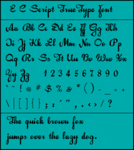 E C Script True Type font
Aa Bb Cc Dd Ee Ff Gg Hh
Ii Jj Kk Ll Mm Nn Oo Pp
Qq Rr Ss Tt Uu Vv Ww Xx
Yy Zz 1 2 3 4 5 6 7 8 9 0
The quick brown fox
jumps over the lazy dog.